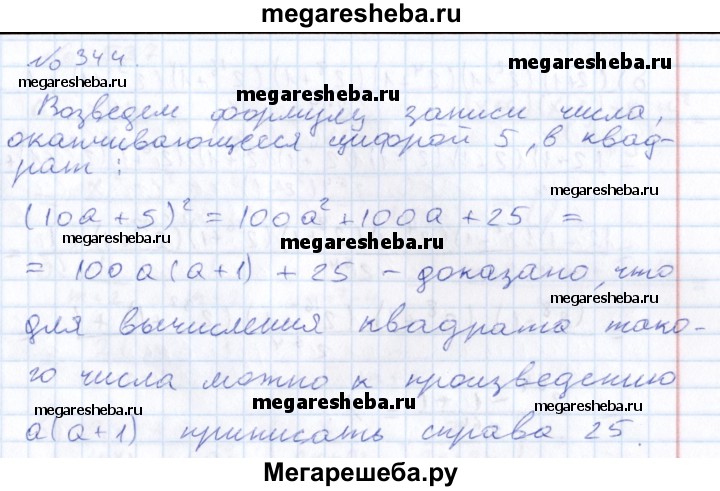 megaresheba.ru
№ 344.
megaresheba.ru
megaresheba.ru
megaresheba.ru
Возведем формулу записи числа,
оканчивающееся цифрой 5, в квад-
рат:
megaresheba.ru
(10a + 5)² = 100a² + 100a + 25 =
megaresheba.ru
megaresheba.ru
megaresheba.ru
= 100a(a+1) + 25 - доказано, что
для вычисления квадрата тако-
го числа можно к произведению
megaresheba.ru
megaresheba.ru
megaresheba.ru
a(a+1) приписать справа 25.
Мегарешеба.ру